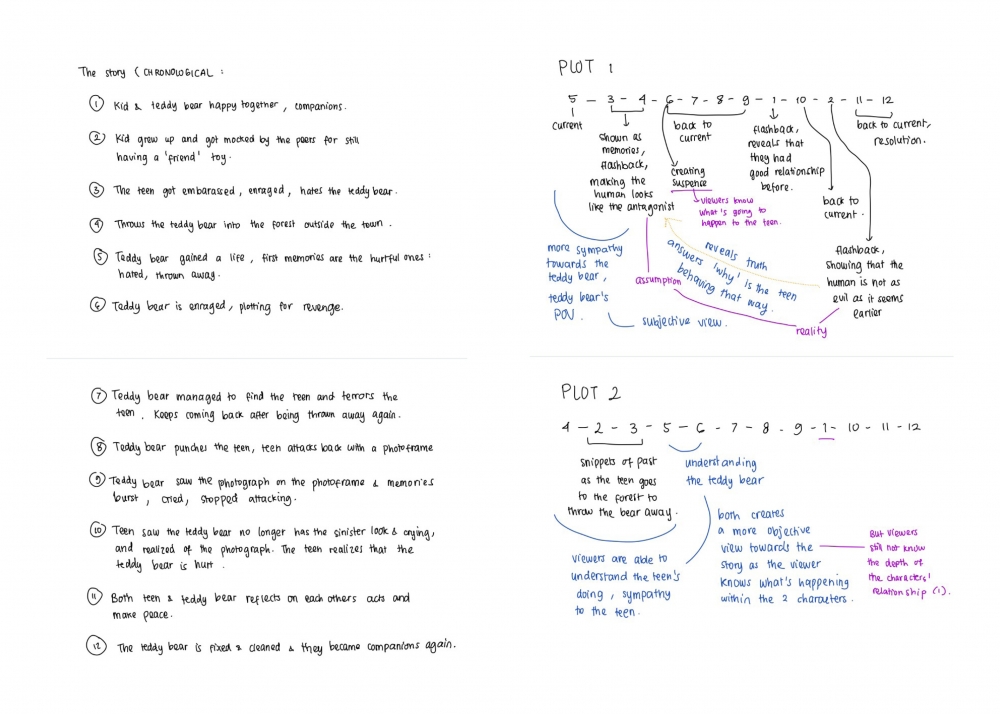 The story (CHRONOLOGICAL :
① Kid & teddy bear happy together, companions.
② Kid grew up and got mocked by the peers for still
having a 'friend' toy.
③ The teen got embarassed, enraged, hates the teddy bear.
④ Throws the teddy bear into the forest outside the town.
⑤ Teddy bear gained a life, first memories are the hurtful ones :
hated, thrown away.
⑥ Teddy bear is enraged, plotting for revenge.
⑦ Teddy bear managed to find the teen and terrors the
teen. Keeps coming back after being thrown away again.
⑧ Teddy bear punches the teen, teen attacks back with a photoframe
⑨ Teddy bear saw the photograph on the photoframe & memories
burst, cried, stopped attacking.
⑩ Teen saw the teddy bear no longer has the sinister look & crying,
and realized of the photograph. The teen realizes that the
teddy bear is hurt.
⑪ Both teen & teddy bear reflects on each others acts and
make peace.
⑫ The teddy bear is fixed & cleaned & they became companions again.
PLOT 1
5 - 3 - 4 - 6 - 7 - 8 - 9 - 1 - 10 - 2 - 11 - 12
current
shown as
memories,
flashback,
making the
human looks
like the antagonist
back to
current
creating
suspense
viewers know
what's going to
happen to the teen.
flashback,
reveals that
they had
good relationship
before.
back to
current.
back to current,
resolution.
flashback,
showing that the
human is not as
evil as it seems
earlier
more sympathy
towards the
teddy bear,
teddy bear's
POV.
subjective view.
assumption
reveals truth
answers 'why' is the teen
behaving that way.
reality
PLOT 2
4 - 2 - 3 - 5 - 6 - 7 - 8 - 9 - 1 - 10 - 11 - 12
snippets of past
as the teen goes
to the forest to
throw the bear away.
understanding
the teddy bear
viewers are able to
understand the teen's
doing, sympathy
to the teen.
both creates
a more objective
view towards the
story as the viewer
knows what's happening
within the 2 characters.
But viewers
still not know
the depth of
the characters'
relationship (1).